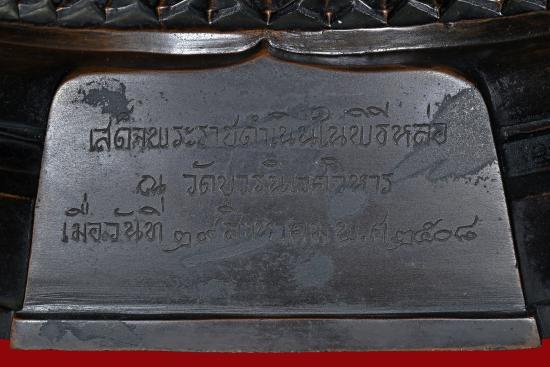 เสด็จพระราชดำเนินในพิธีหล่อ
ณ วัดบวรนิเวศวิหาร
เมื่อวันที่ ๒๙ สิงหาคม พ.ศ ๒๕๐๘